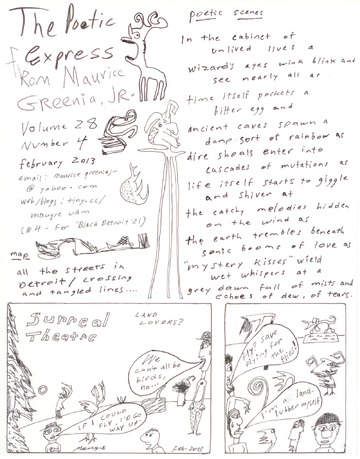 The Poetic
Express
from Maurice
Greenia, JR.
Volume 28
Number 4
february 2013
email: maurice greeniajr
@ yahoo.com
web/blogs: tiny.cc/
map
all the streets in
Detroit/ crossing
and tangled lines....
poetic scenes
In the cabinet of
unlived lives a
wizard's eyes wink blink and
see nearly all as
time itself pockets a
bitter egg and
ancient caves spawn a
damp sort of rainbow as
dire shoals enter into
cascades of mutations as
life itself starts to giggle
and shiver at
the catchy melodies hidden
on the wind as
the earth trembles beneath
sonic booms of love as
"mystery kisses" wield
wet whispers at a
grey dawn fall of mists and
echoes of dew, of tears.
Surreal
Theatre
LAND
LOVERS?
We
can't all be
birds,
no--
IF I COULD
FLY, I'D GO
WAY UP!
Feb. 2013
for the
I'm a land-
lubber myself